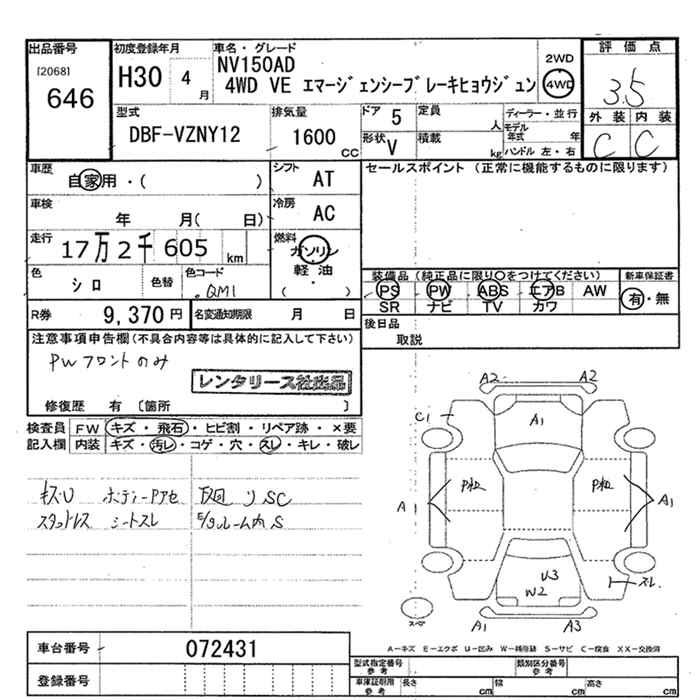 出品番号
[2068]
646
初度登録年月
H30 4 月
車名・グレード
NV150AD
4WD VE エマージェンシーブレーキヒョウジュン
2WD
4WD
評価点
3.5
外装 内装
C C
型式
DBF-VZNY12
排気量
1600 CC
ドア 5
定員 人
形状 V
積載 kg
ディーラー・並行
モデル年式 年
ハンドル 左・右
車歴
自家用・( )
シフト
AT
セールスポイント (正常に機能するものに限ります)
車検
年 月( 日)
冷房
AC
走行
17万2千605 km
燃料
ガソリン
軽油
( ・ )
色
シロ
色替
色コード
QM1
装備品(純正品に限り○をつけてください)
PS PW ABS エアB AW
SR ナビ TV カワ
新車保証書
有・無
R券
9,370円
名変通知期限 月 日
後日品
取説
注意事項申告欄(不具合内容等は具体的に記入して下さい)
PWフロントのみ
レンタリース社出品
修復歴 有 〔箇所 〕
検査員記入欄
FW キズ・飛石・ヒビ割・リペア跡・×要
内装 キズ・汚レ・コゲ・穴・スレ・キレ・破レ
キズU ボディーPアセ 下回リSC
スタッドレス シートスレ E/gルーム内S
A2 A2
C1 A1
A1 P粗 P粗 A1
U3
W2
スレ
スペア
A1 A3
A-キズ E-エクボ U-凹み W-補修跡 S-サビ C-腐食 XX-交換済
車台番号 072431
登録番号
型式指定番号 参考
類別区分番号 参考
車庫証明用 参考 長さ cm 幅 cm 高さ cm